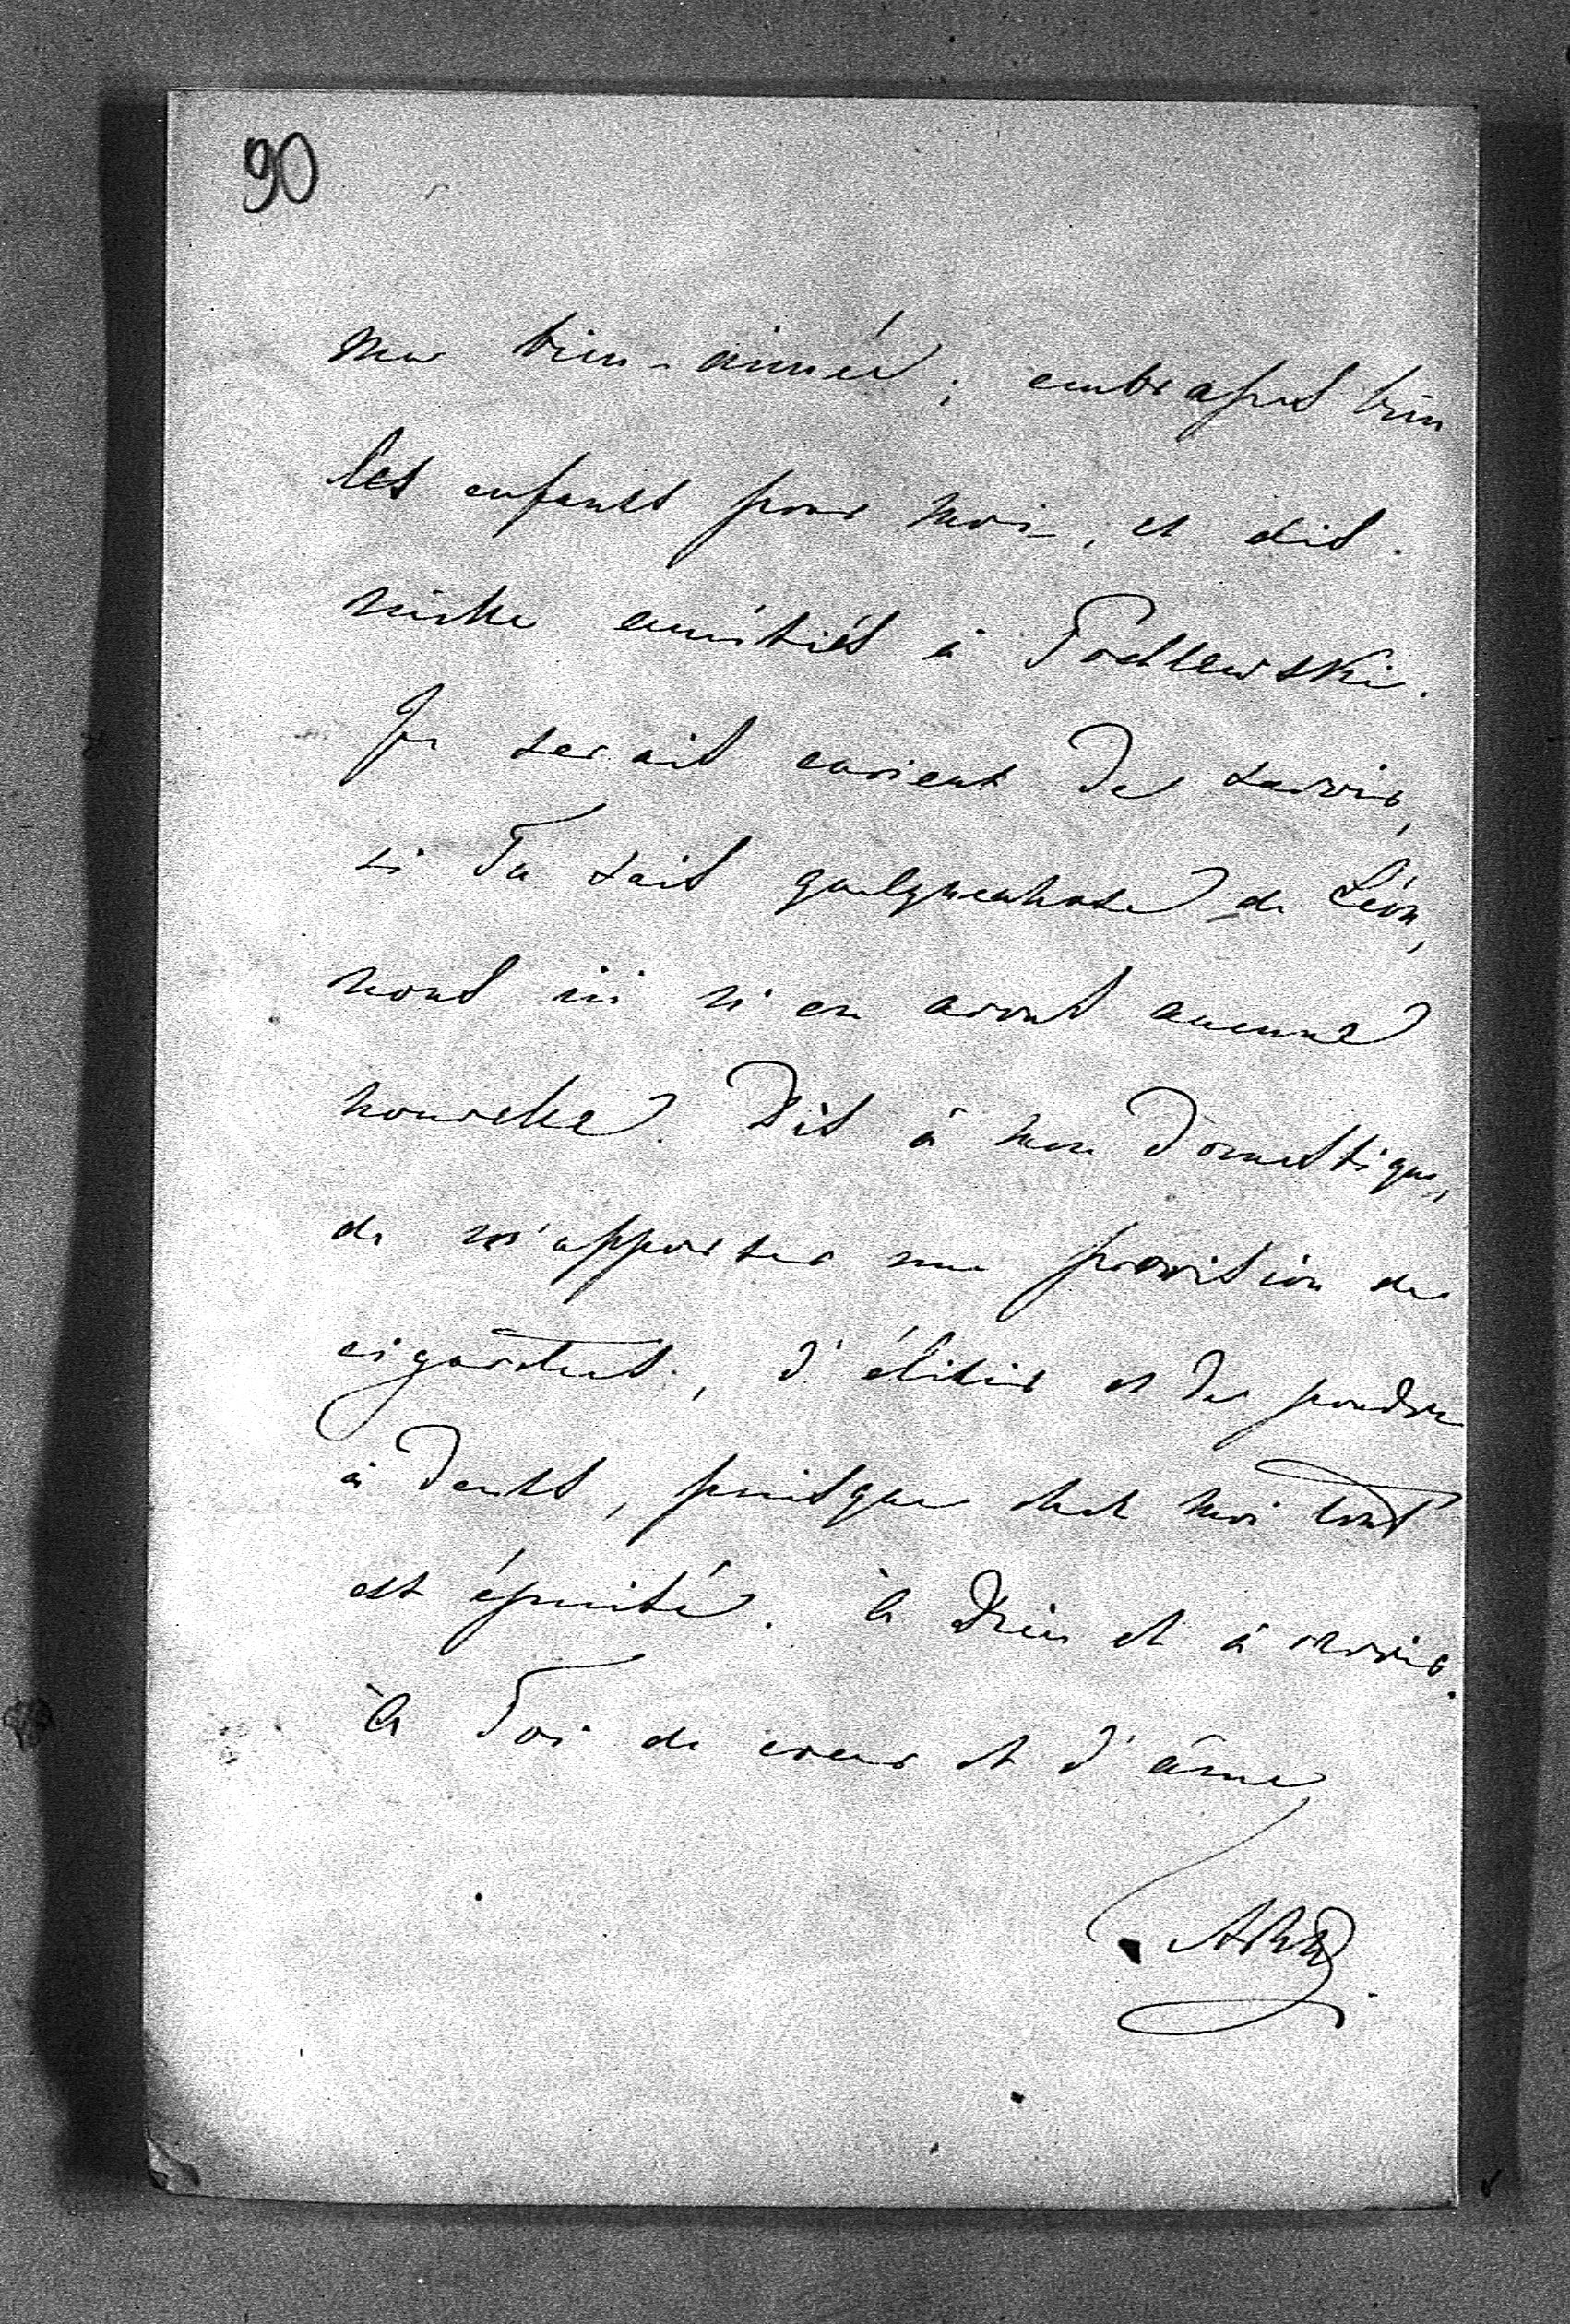 90
ma bien-aimée; embrasses bien
les enfants pour moi, et dis
mille amitiés à Podlewski.
Je serais curieux de savoir,
si Tu sais quelquechose de Léon,
nous ici n'en avons aucune
nouvelle. Dis à mon domestique,
de m'apporter une provision de
cigarettes, d'élixir et de poudre
à dents, puisque chez moi tout
est épuisé. à Dieu et à revoir.
à Toi de cœur et d'âme